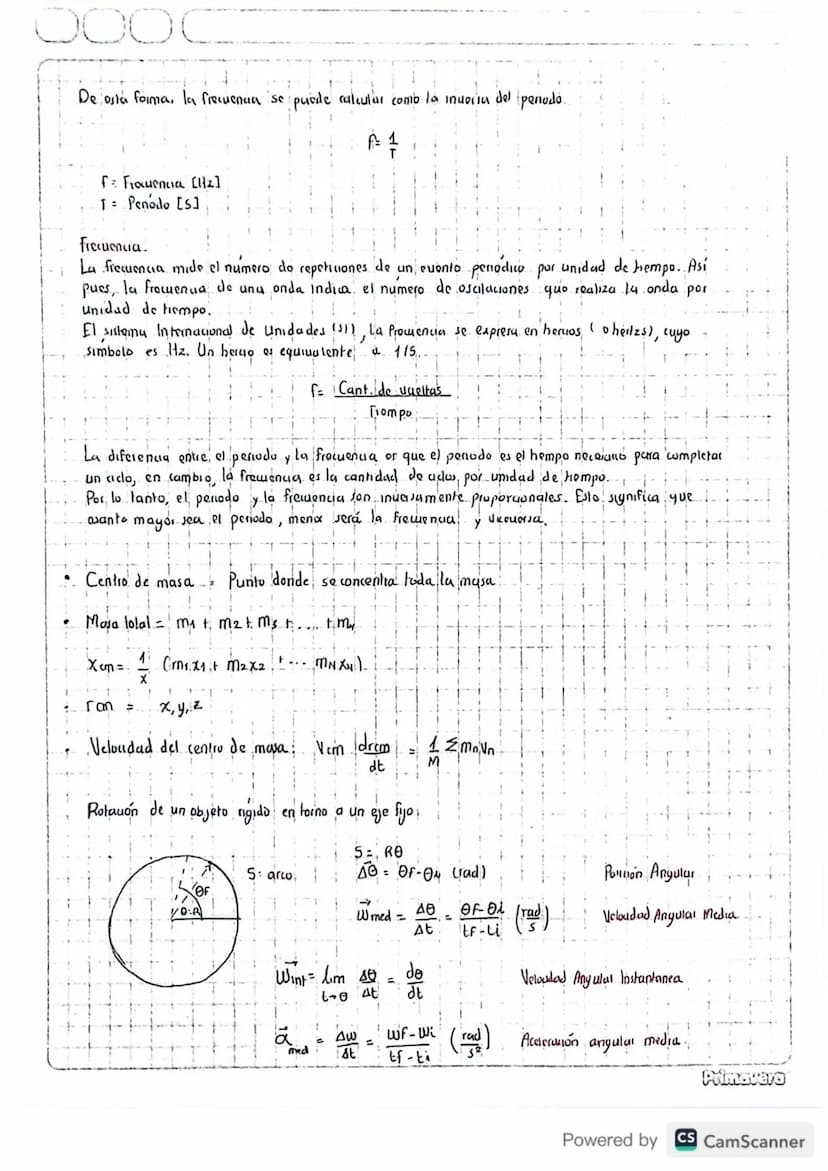 De esta forma, la frecuencia se puede calcular como la inversa del periodo.
f= 1/T
f = Frecuencia [Hz]
T = Periodo [S]
Frecuencia.
La frecuencia mide el número de repeticiones de un evento periódico por unidad de tiempo. Así
pues, la frecuencia de una onda indica el número de oscilaciones que realiza la onda por
unidad de tiempo.
El sistema Internacional de Unidades (SI), La frecuencia se expresa en hercios ( o heritzs), cuyo
simbolo es Hz. Un hercio es equivalente a 1/S.
f= Cant. de vueltas / Tiempo
La diferencia entre el periodo y la frecuencia es que el periodo es el tiempo necesario para completar
un ciclo, en cambio, la frecuencia es la cantidad de ciclos por unidad de tiempo.
Por lo tanto, el periodo y la frecuencia son inversamente proporcionales. Esto significa que
cuanto mayor sea el periodo, menor será la frecuencia y viceversa.
• Centro de masa , Punto donde se concentra toda la masa
• Masa total = m1 + m2 + m3 + .... +
Xcm = 1/x (m1.x1 + m2x2 + ... mNXN).
• rcm = x, y, z
• Velocidad del centro de masa: Vcm drcm/dt = 1/M Σ mnVn
Rotación de un objeto rígido en torno a un eje fijo:
S = Rθ
S: arco
Δθ = θF-θi (rad) Posición Angular
θF
θ:R
W⃗med = Δθ/Δt = θF-θi/tF-ti (rad/s) Velocidad Angular Media
W⃗int = lim t→0 Δθ/Δt = dθ/dt Velocidad Angular Instantanea
α⃗med = Δw/Δt = wF-wi/tf-ti (rad/s²) Aceleración angular media.
Primavera
Powered by CS CamScanner